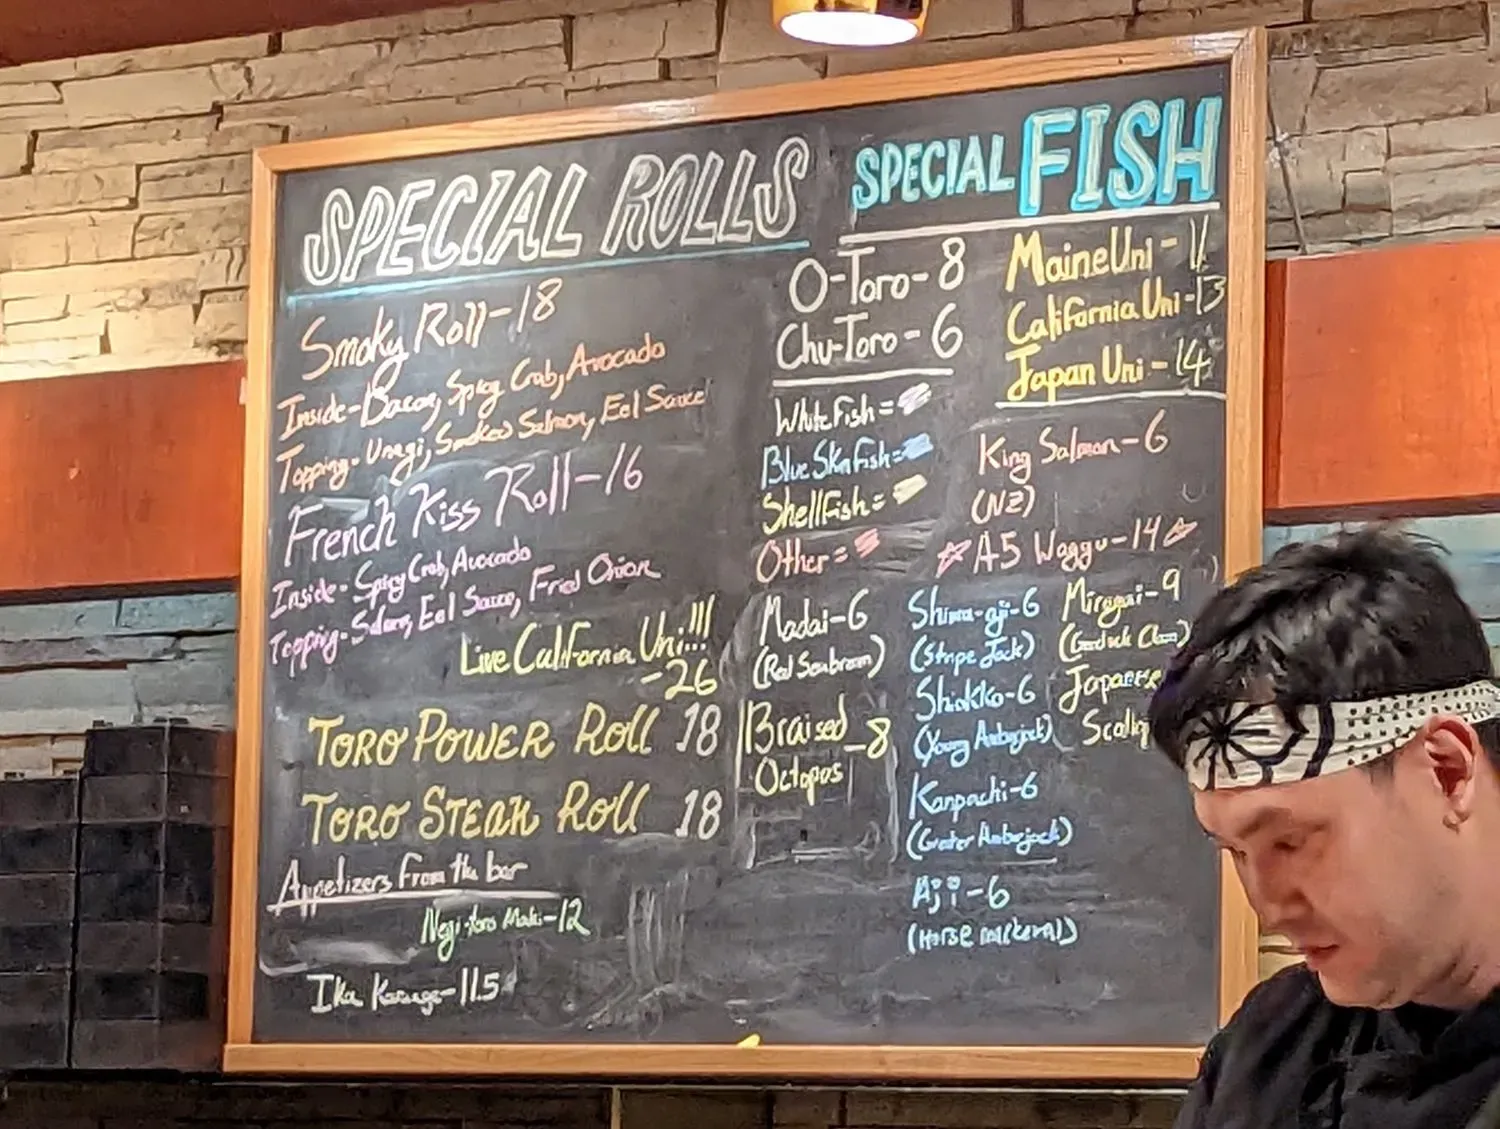 SPECIAL ROLLS
Smoky Roll-18
Inside-Bacon, Spicy Crab, Avocado
Topping-Unagi, Smoked Salmon, Eel Sauce
French Kiss Roll-16
Inside-Spicy Crab, Avocado
Topping-Salmon, Eel Sauce, Fried Onion
Live California Uni!!!
-26
TORO POWER Roll 18
TORO STEAK Roll 18
Appetizers From the bar
Negi-toro Maki-12
Ika Karaage-11.5
SPECIAL FISH
O-Toro-8
Chu-Toro-6
Maine Uni-11
California Uni-13
Japan Uni-14
White Fish=
Blue Skn Fish=
Shell Fish=
Other=
King Salmon-6
(NZ)
A5 Waggu-14
Madai-6
(Red Seabream)
Braised
Octopus -8
Shima-aji-6
(Stripe Jack)
Shiokko-6
(Young Amberjack)
Kanpachi-6
(Greater Amberjack)
Aji-6
(Horse mackeral)
Mirugai-9
(Geoduck Clam)
Japanese